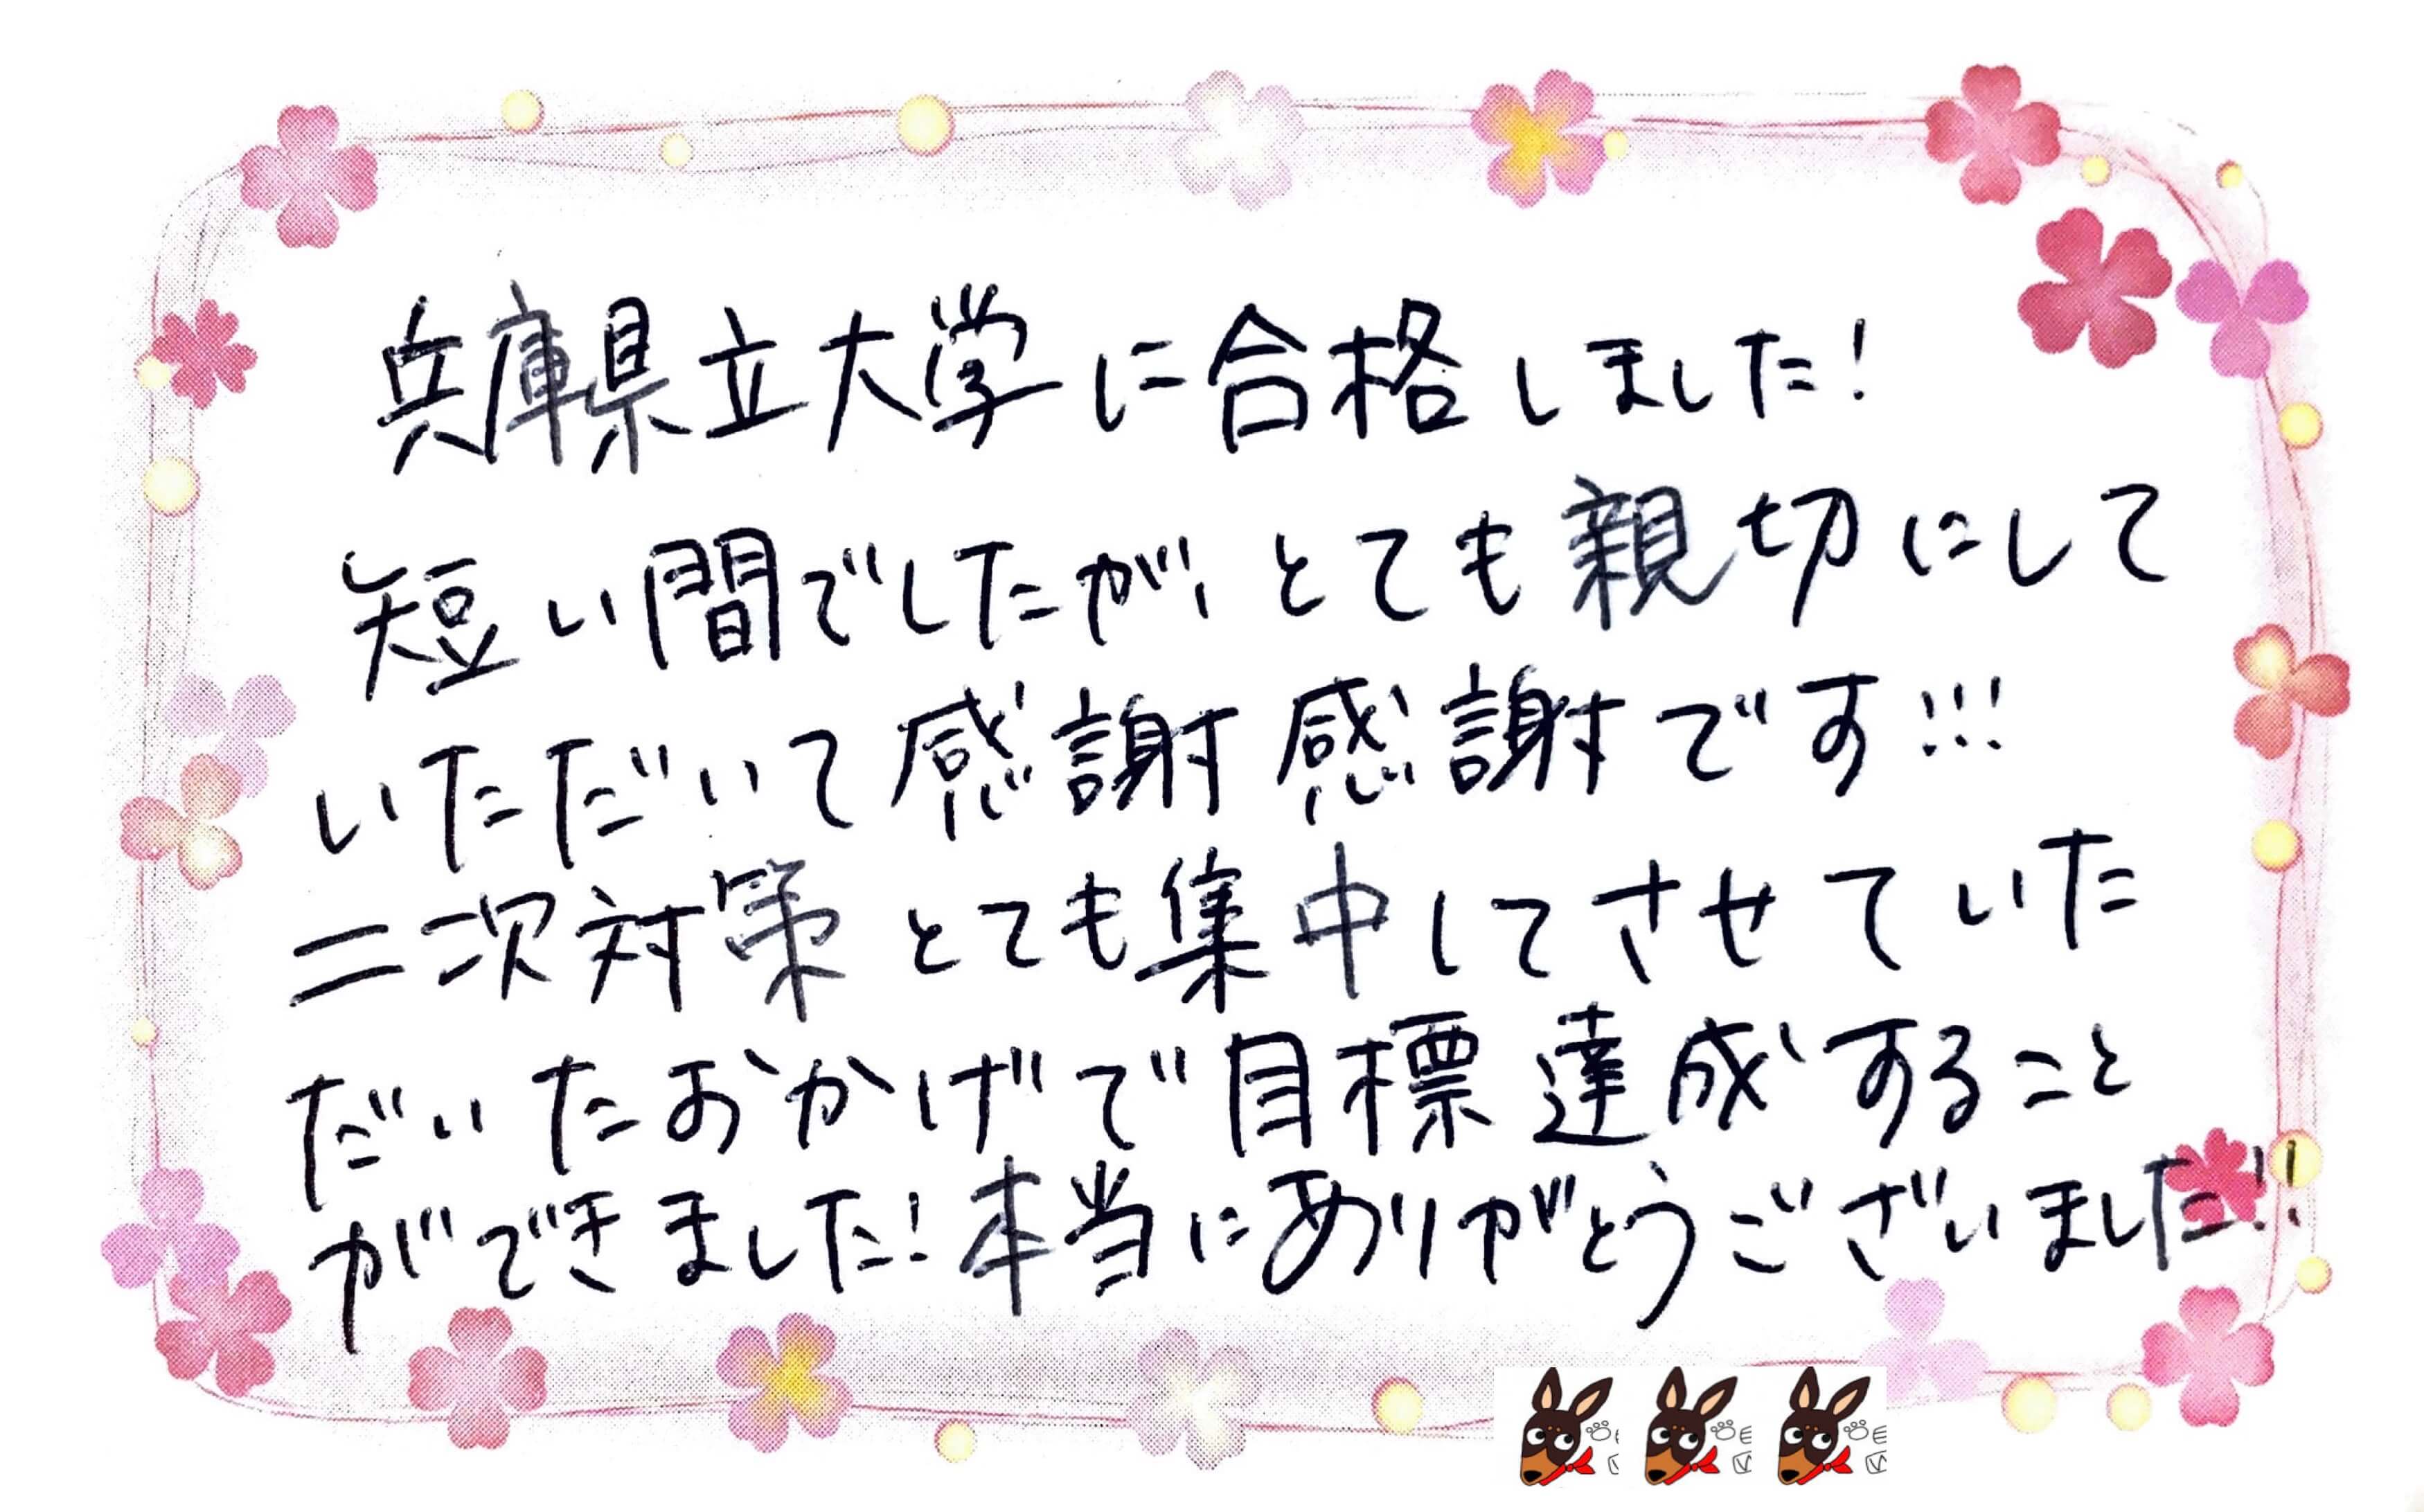 兵庫県立大学に合格しました!
短い間でしたが、とても親切にして
いただいて感謝感謝です!!!
二次対策とても集中してさせていた
だいたおかげで目標達成すること
ができました!本当にありがとうございました!!